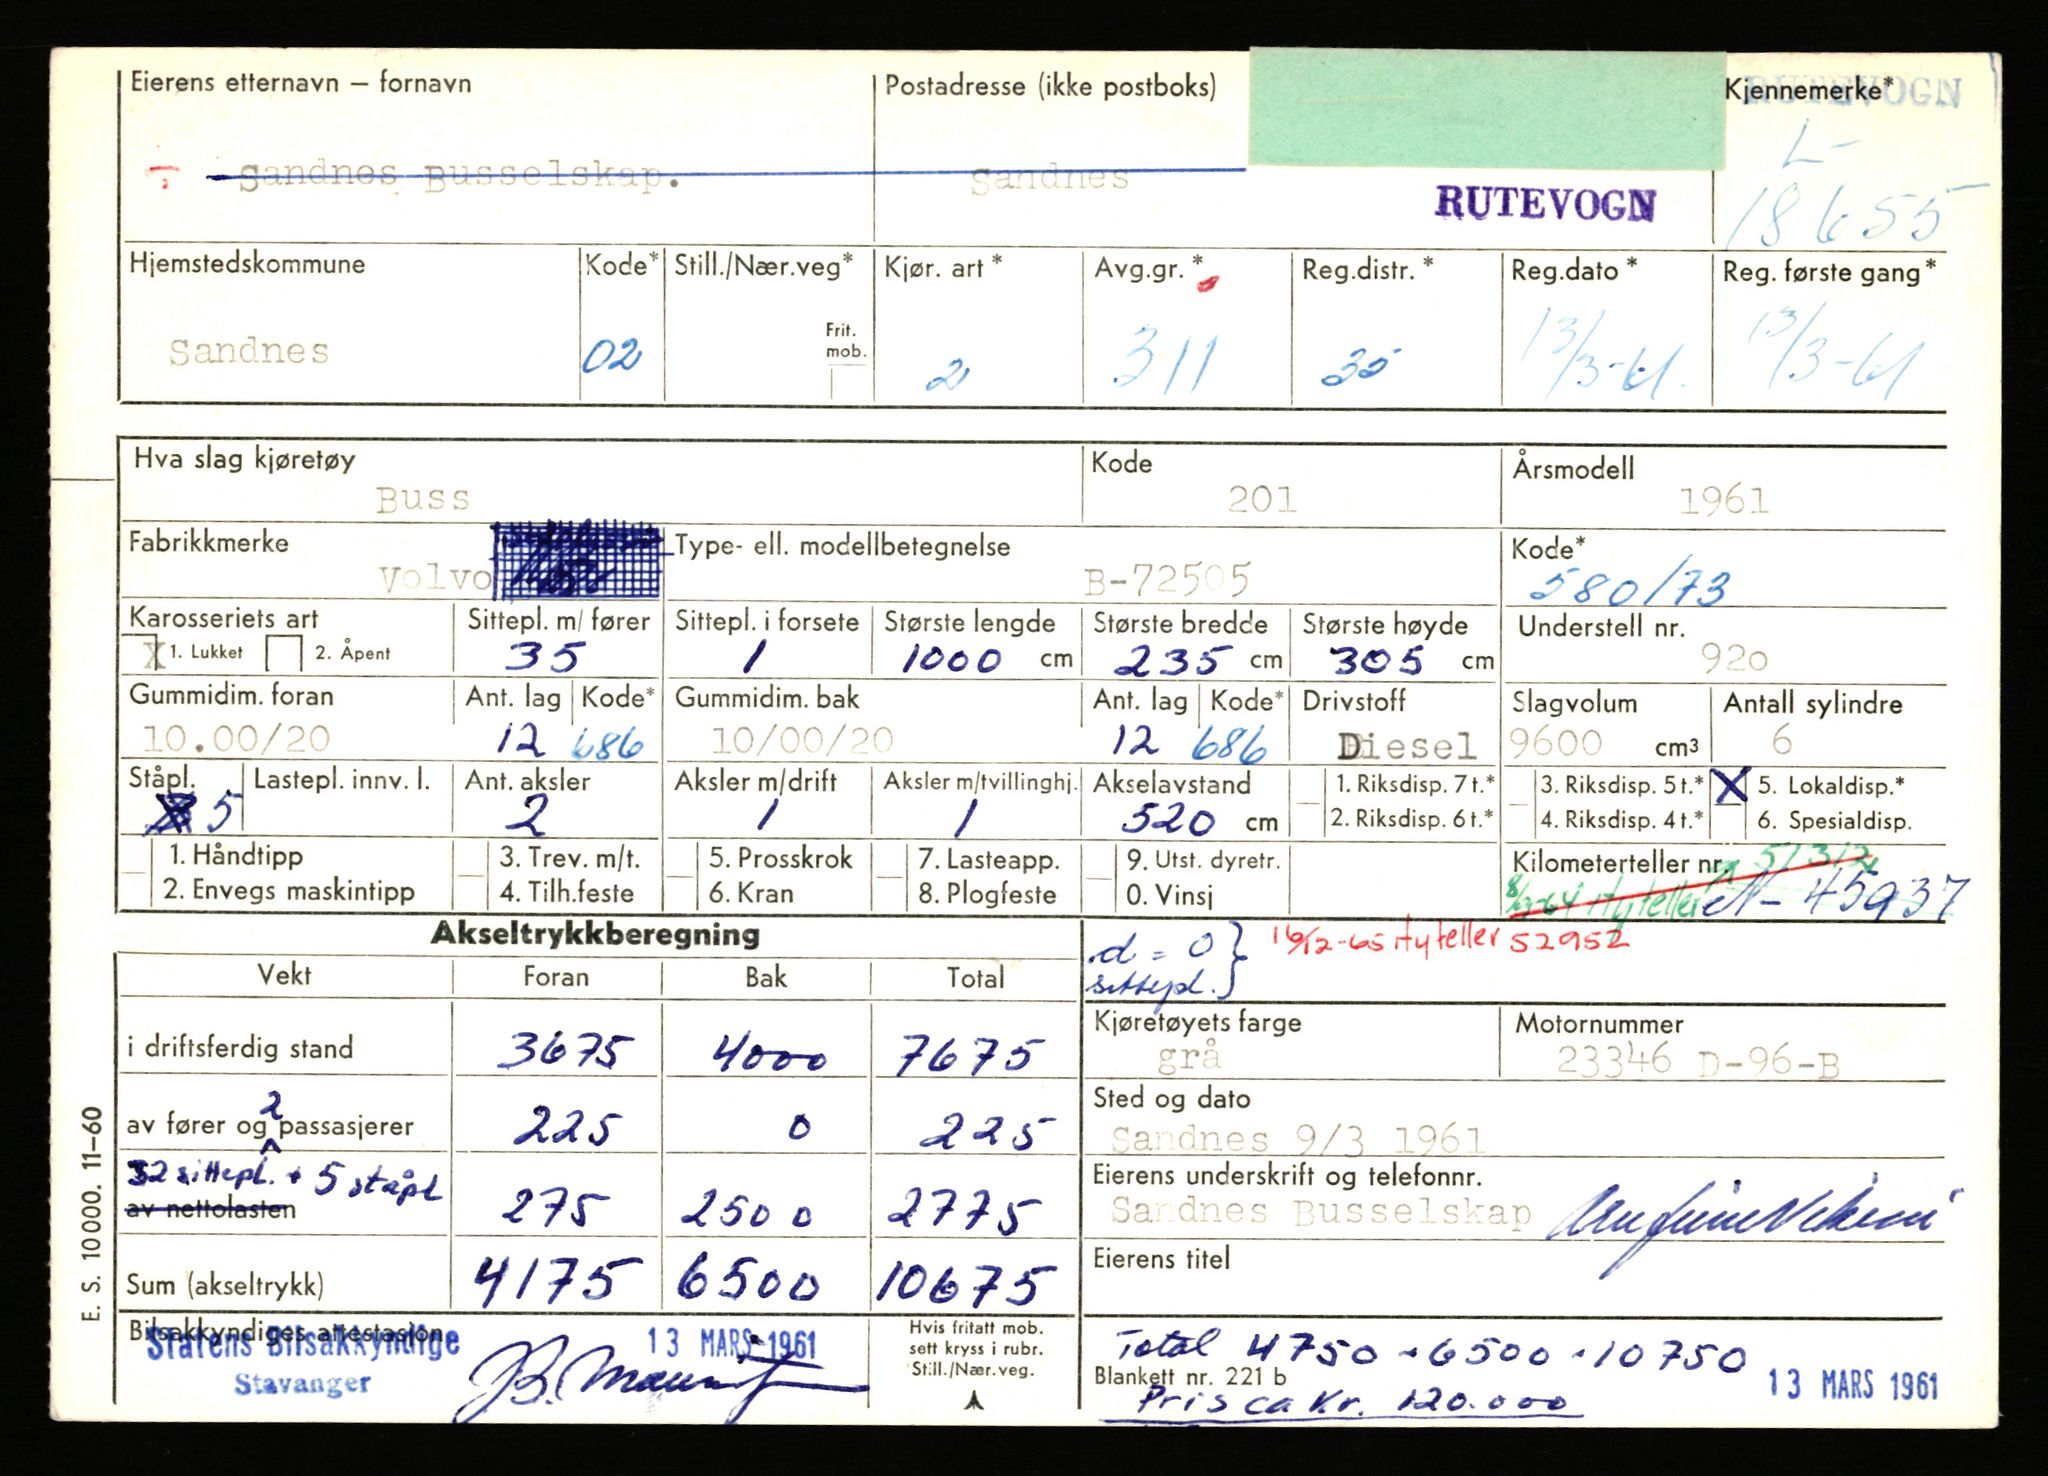 Eierens etternavn — fornavn
Postadresse (ikke postboks)
Kjennemerke*
RUTEVOGN
Sandnes Busselskap.
Sandnes
RUTEVOGN
L-
18655
Hjemstedskommune
Kode*
Still./Nær.veg*
Kjør. art *
Avg.gr. *
Reg.distr. *
Reg.dato *
Reg. første gang *
Sandnes
02
Frit. mob.
2
311
35
13/3-61.
13/3-61
Hva slag kjøretøy
Kode
Årsmodell
Buss
201
1961
Fabrikkmerke
Type- ell. modellbetegnelse
Kode*
Volvo
B-72505
580/73
Karosseriets art
Sittepl. m/ fører
Sittepl. i forsete
Største lengde
Største bredde
Største høyde
Understell nr.
X 1. Lukket 2. Åpent
35
1
1000 cm
235 cm
305 cm
920
Gummidim. foran
Ant. lag
Kode*
Gummidim. bak
Ant. lag
Kode*
Drivstoff
Slagvolum
Antall sylindre
10.00/20
12
686
10/00/20
12
686
Diesel
9600 cm3
6
Ståpl.
Lastepl. innv. l.
Ant. aksler
Aksler m/drift
Aksler m/tvillinghj.
Akselavstand
1. Riksdisp. 7 t.*
3. Riksdisp. 5 t.*
X 5. Lokaldisp.*
5
2
1
1
520 cm
2. Riksdisp. 6 t.*
4. Riksdisp. 4 t.*
6. Spesialdisp.
1. Håndtipp
3. Trev. m/t.
5. Prosskrok
7. Lasteapp.
9. Utst. dyretr.
Kilometerteller nr.
2. Envegs maskintipp
4. Tilh.feste
6. Kran
8. Plogfeste
0. Vinsj
N-45937
Akseltrykkberegning
d = 0 }
sittepl.
16/12-65 Ny teller 52952
Vekt
Foran
Bak
Total
Kjøretøyets farge
Motornummer
i driftsferdig stand
3675
4000
7675
grå
23346 D-96-B
av fører og 2 passasjerer
225
0
225
Sted og dato
Sandnes 9/3 1961
32 sittepl. + 5 ståpl
av nettolasten
275
2500
2775
Eierens underskrift og telefonnr.
Sandnes Busselskap
Sum (akseltrykk)
4175
6500
10675
Eierens titel
Bilsakkyndiges attestasjon
Statens Bilsakkyndige
Stavanger
13 MARS 1961
Hvis fritatt mob.
sett kryss i rubr.
Still./Nær.veg.
Total 4750 - 6500 - 10750
Blankett nr. 221 b
13 MARS 1961
Pris ca Kr. 120.000
E. S. 10000. 11—60